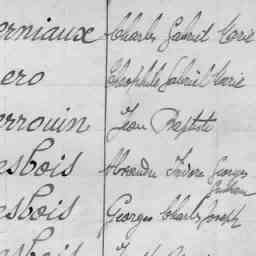 erniaux Charles Gabriel Marie
ero Théophile Gabriel Marie
errouin Jean Baptiste
esbois Alexandre Isidore Georges
esbois Georges Charles Joseph